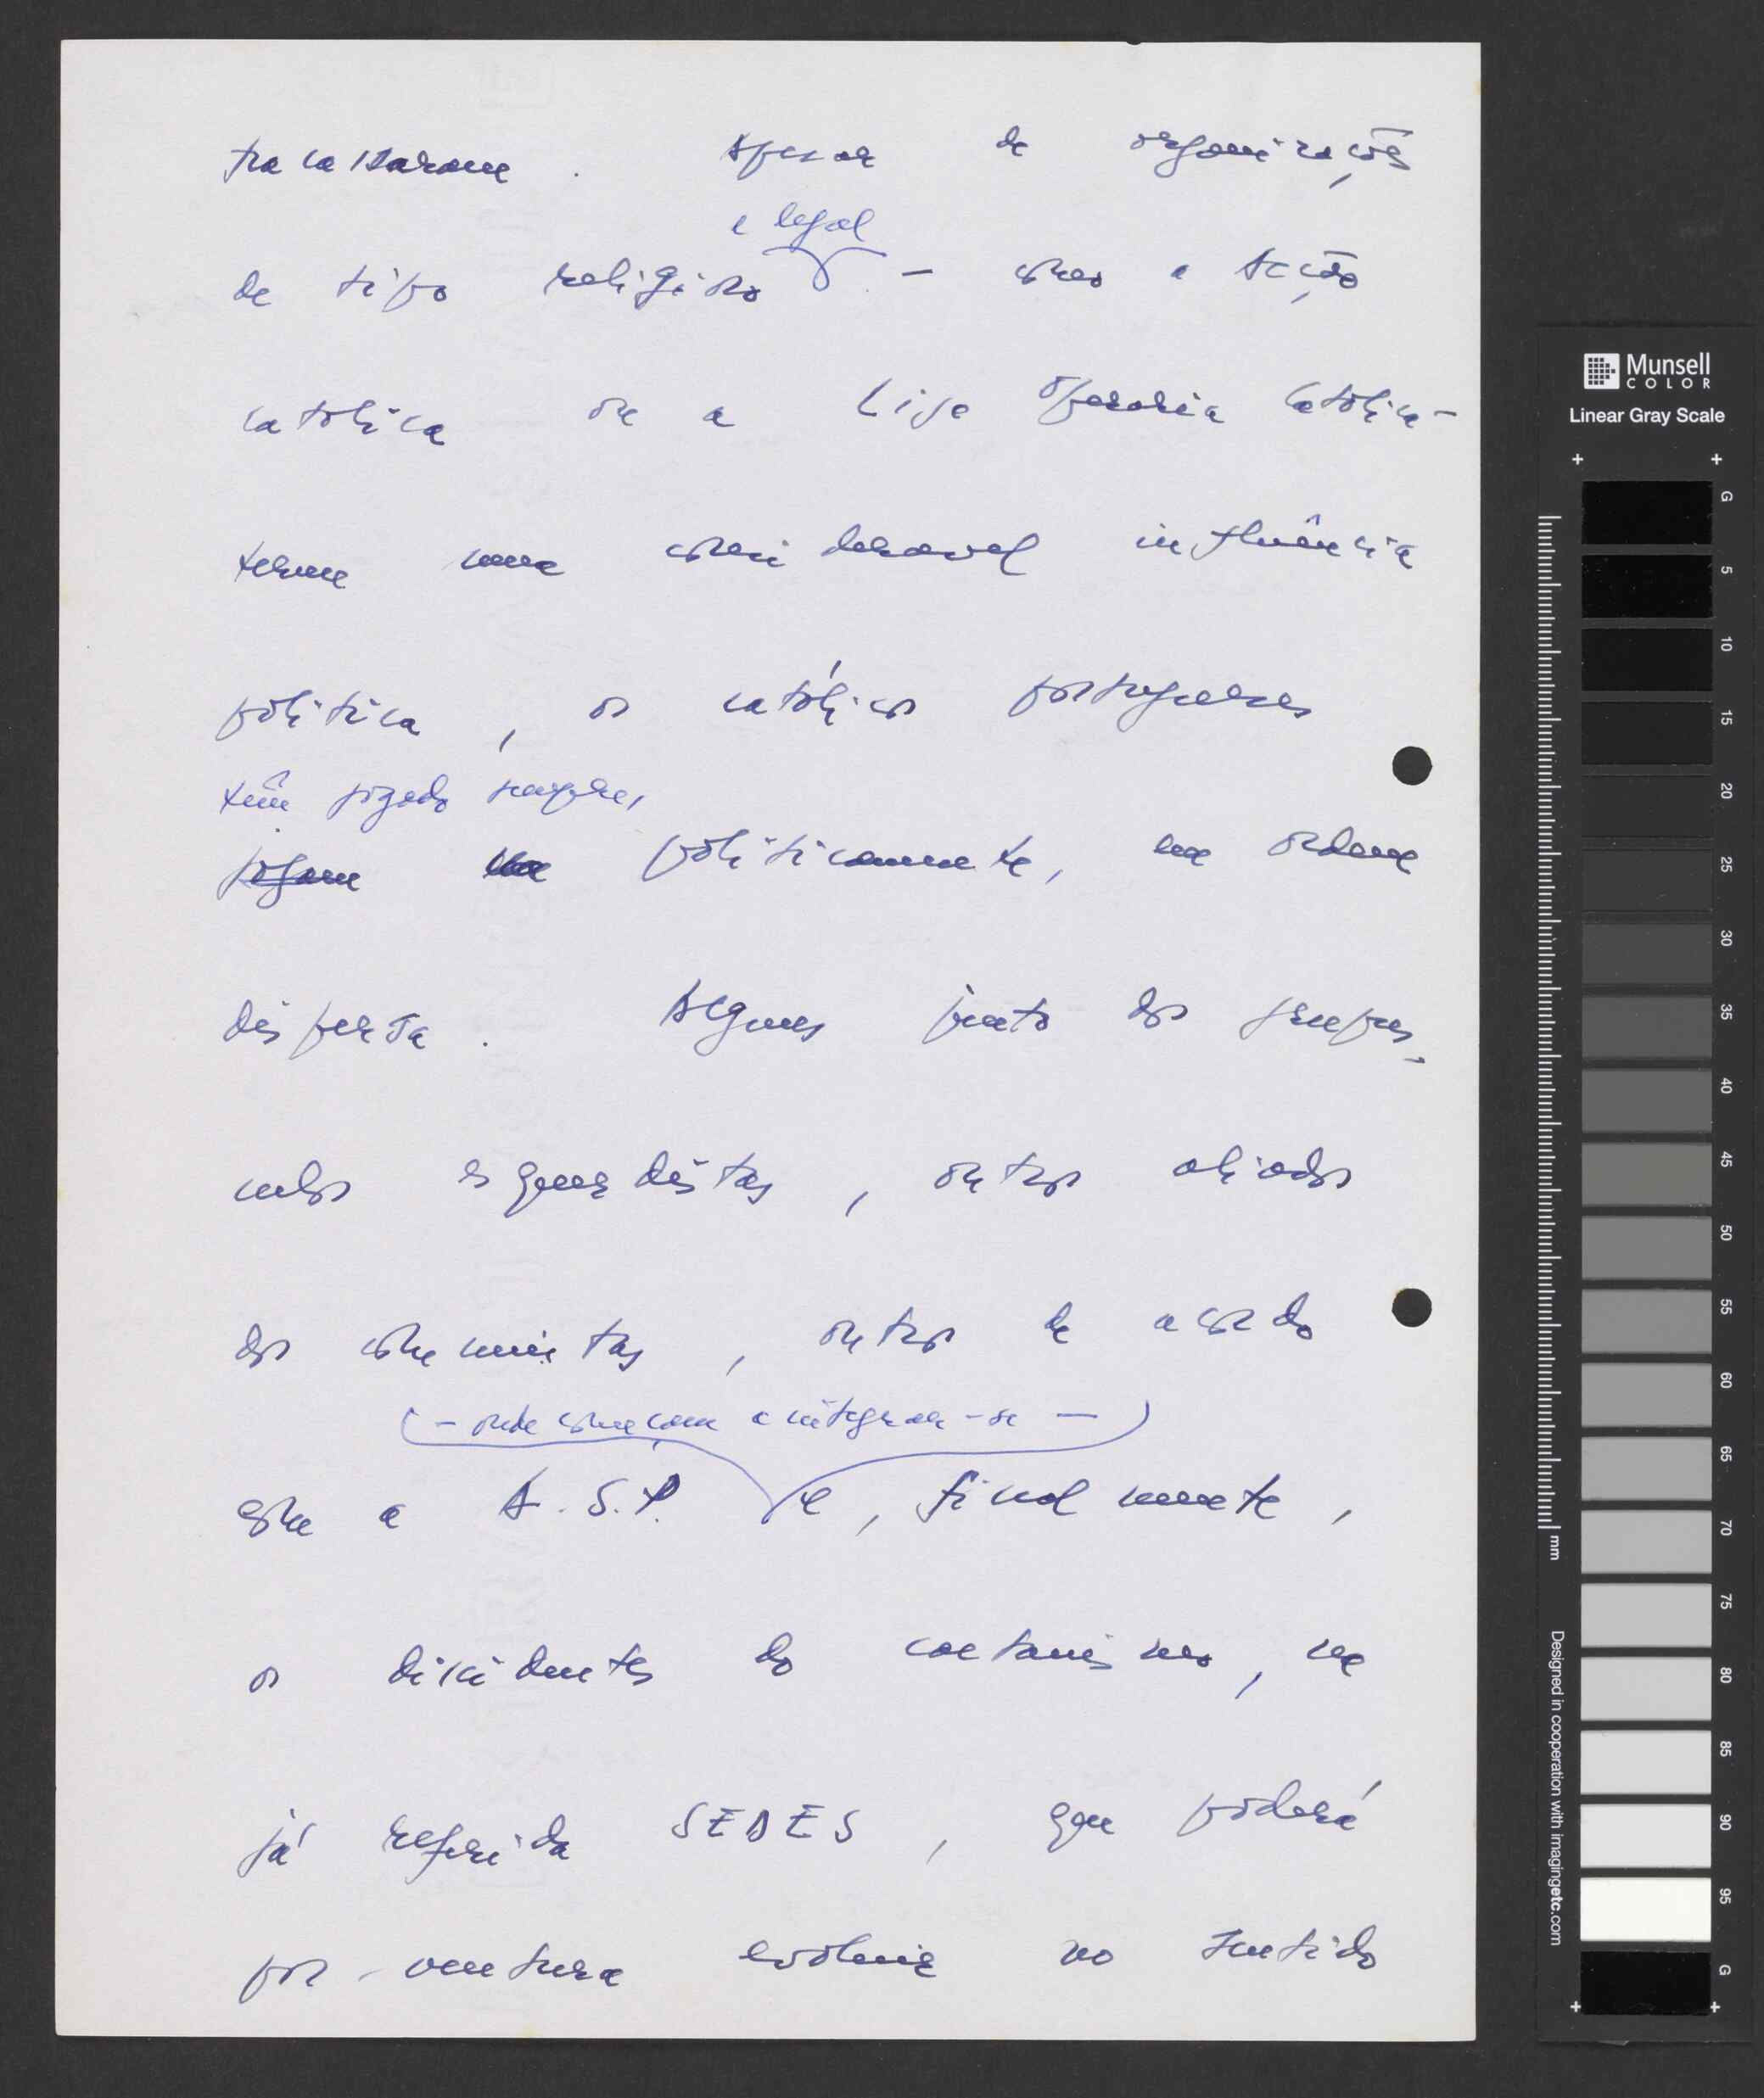 fracassaram. Apesar de organizações
e legal
de tipo religioso - como a Acção
católica ou a Liga Operária Católica -
terem uma considerável influência
política, os católicos portugueses
têm jogado sempre,
jogam politicamente, em ordem
dispersa. Alguns junto dos grupus-
culos esquerdistas, outros aliados
dos comunistas, outros de acordo
(- onde começam a integrar-se -)
com a A.S.P. e, finalmente,
os dissidentes do caetanismo, na
já referida SEDES, que poderá
por-ventura evoluir no sentido
Munsell
COLOR
Linear Gray Scale
G
5
10
15
20
25
30
35
40
45
50
55
60
65
70
75
80
85
90
95
G
mm
Designed in cooperation with imagingetc.com